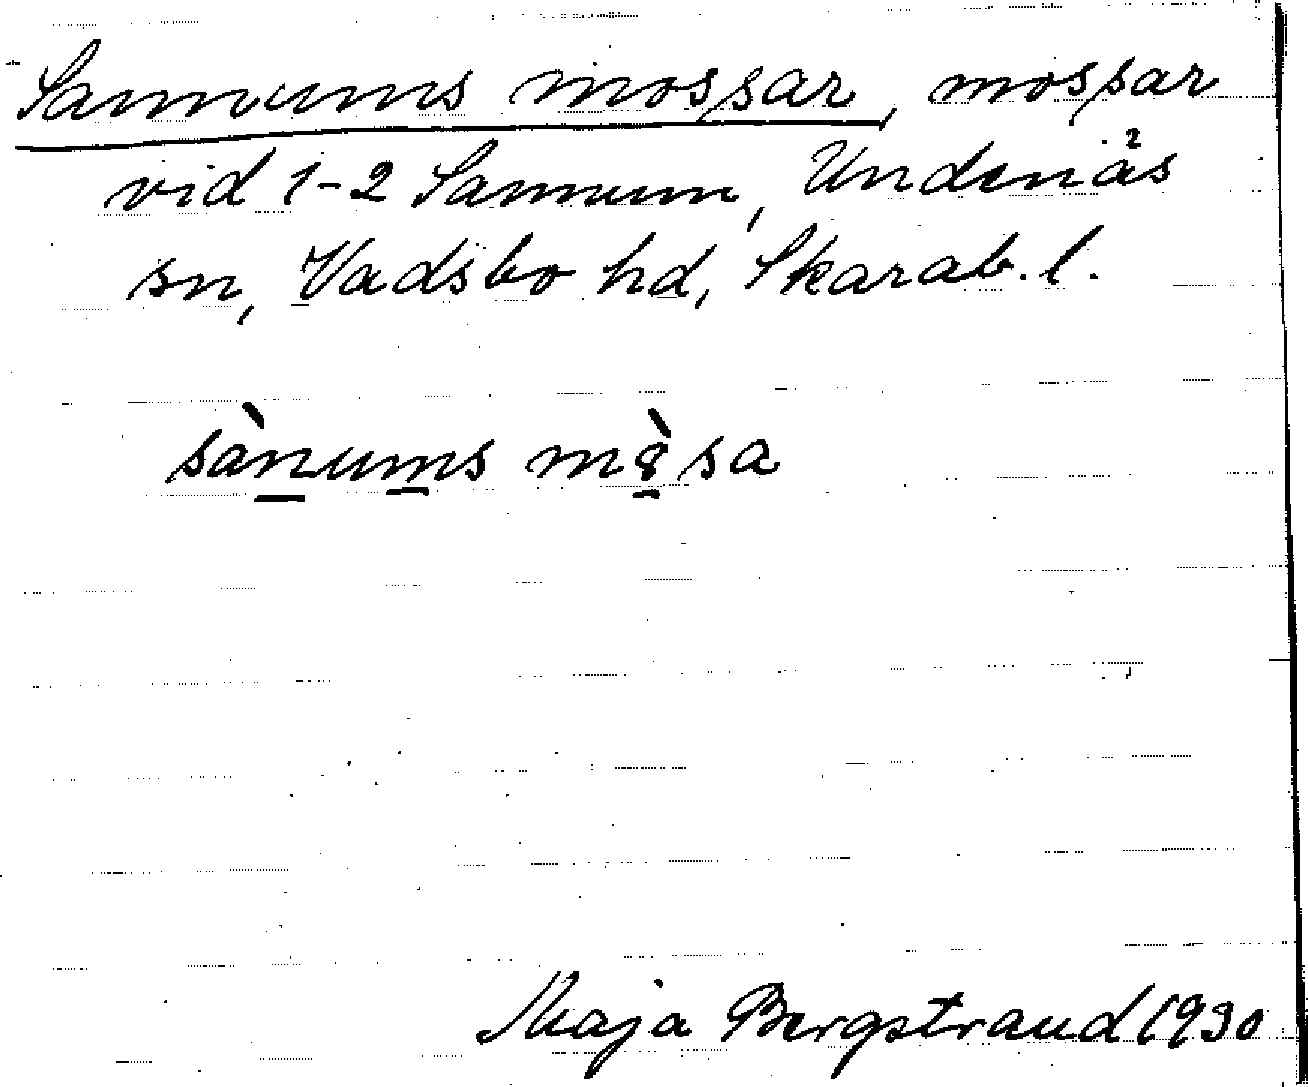 Sannums mossar, mossar
vid 1-2 Sannum, Undenäs
sn, Vadsbo hd, Skarab. l.
sànums m8̀sa
Maja Bergstrand 1930